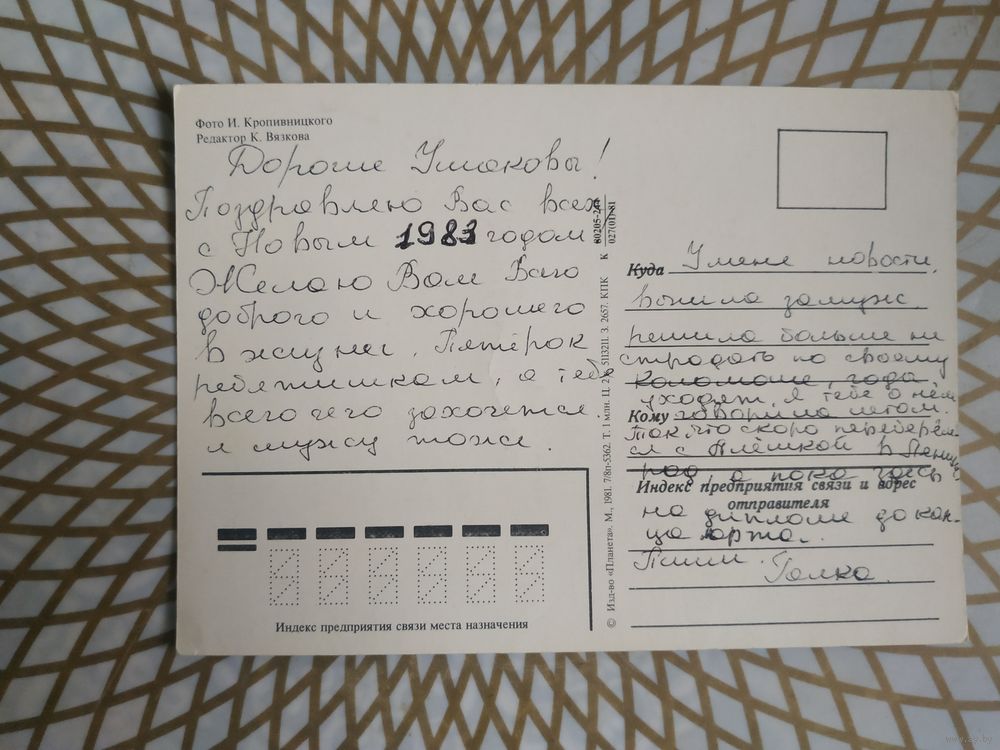 Фото И. Кропивницкого
Редактор К. Вязкова
Дорогие Ушаковы!
Поздравляю Вас всех
с Новым 1983 годом.
Желаю Вам Всего
доброго и хорошего
в жизни. Пятёрок
ребятишкам, а тебе
всего чего захочется
и мужу тоже.
Индекс предприятия связи места назначения
© Изд-во «Планета». М., 1981. 7/8п-5362. Т. 1 млн. Ц. 5113211. З. 2657. КПК
К 027(01)-81
Куда У меня новости,
вышла замуж
решила больше не
страдать по своему
уходят, я тебе о нём
Кому говорила летом.
Так что скоро переберём-
ся с Алёшкой в Ленин
град, а пока здесь
Индекс предприятия связи и адрес
отправителя
на дипломе до кон-
ца марта.
Пиши.
Галка.